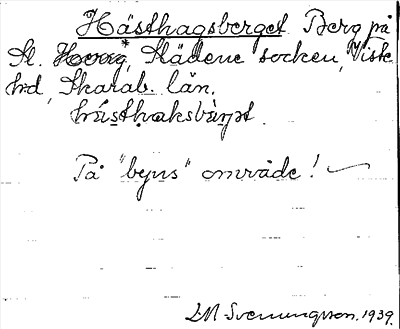 Hästhagsberget Berg på
St. Horog*, Slädene socken, Viste
hrd, Skarab. län.
hä́sthaksbàrjet.
På "byns" område!
D.M. Svenningsson. 1939.